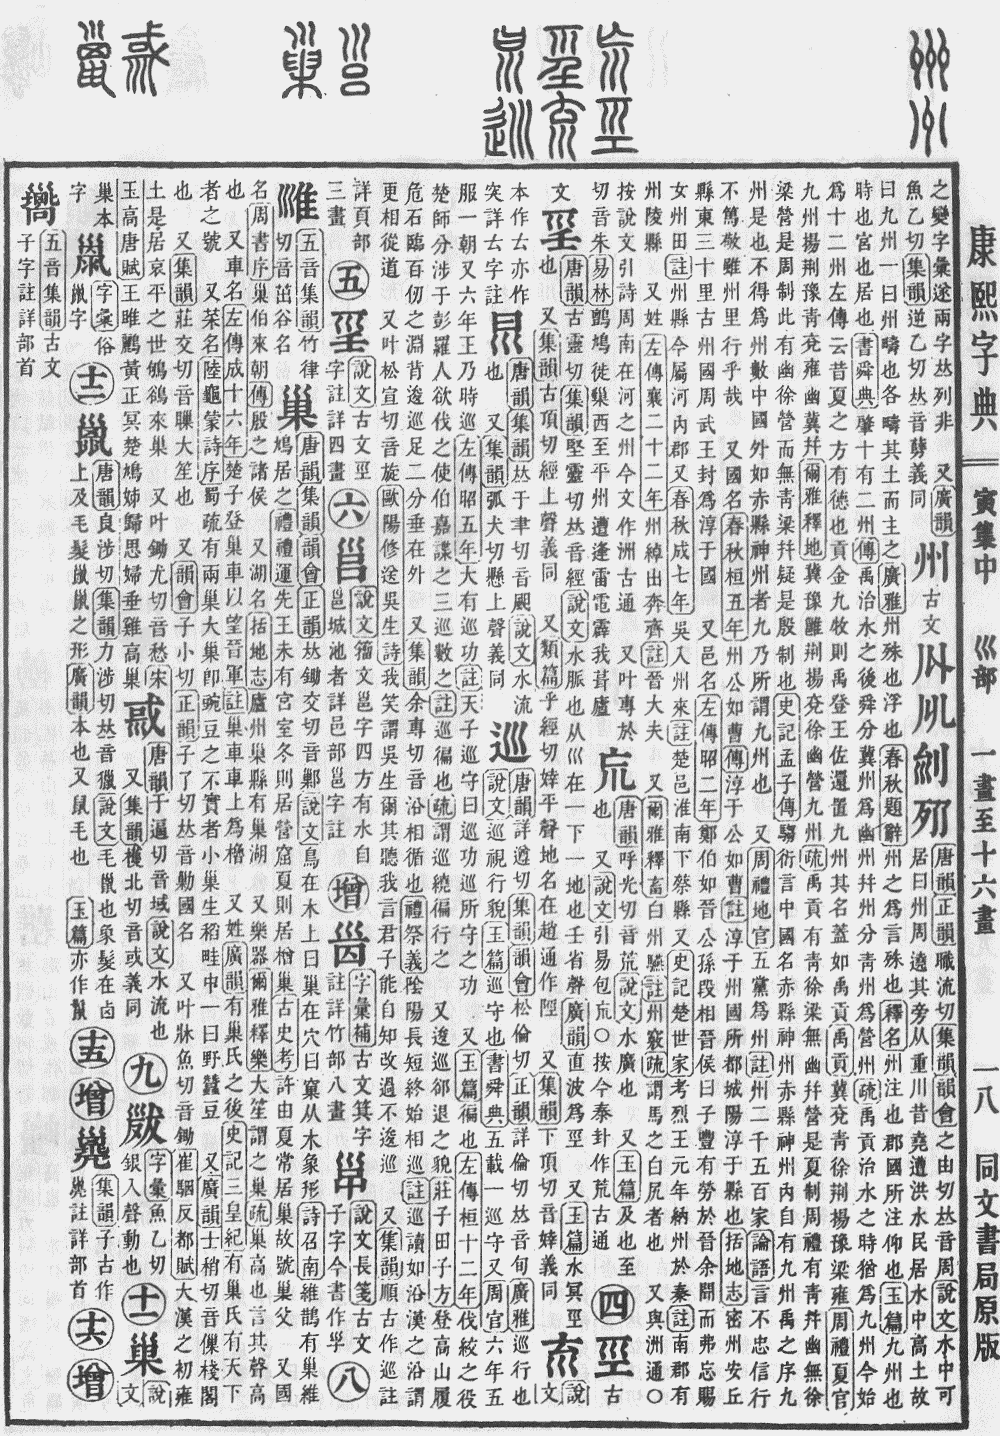 康熙字典 寅集中 巛部 一畫至十六畫 一八 同文書局原版
之變字彙遂兩字𠀤列非 又廣韻
魚乙切集韻逆乙切𠀤音 義同
州 古文
唐韻正韻職流切集韻韻會之由切𠀤音周說文水中可
居曰州周遶其旁从重川昔堯遭洪水民居水中高土故
曰九州一曰州疇也各疇其土而主之廣雅州殊也浮也春秋題辭州之爲言殊也釋名州注也郡國所注仰也玉篇九州也
時也宮也居也書舜典肇十有二州傳禹治水之後舜分冀州爲幽州幷州分青州爲營州疏禹貢治水之時猶爲九州今始
爲十二州左傳云昔夏之方有德也貢金九牧則禹登王佐還置九州其名蓋如禹貢禹貢冀兗青徐荆揚豫梁雍周禮夏官
九州揚荆豫青兗雍幽冀幷爾雅釋地冀豫雝荆揚兗徐幽營九州疏禹貢有青徐梁無幽幷營是夏制周禮有青幷幽無徐
梁營是周制此有幽徐營而無青梁幷疑是殷制也史記孟子傳騶衍言中國名赤縣神州赤縣神州內自有九州禹之序九
州是也不得爲州數中國外如赤縣神州者九乃所謂九州也 又周禮地官五黨爲州註州二千五百家論語言不忠信行
不篤敬雖州里行乎哉 又國名春秋桓五年州公如曹傳淳于公如曹註淳于州國所都城陽淳于縣也括地志密州安丘
縣東三十里古州國周武王封爲淳于國 又邑名左傳昭二年鄭伯如晉公孫段相晉侯曰子豐有勞於晉余聞而弗忘賜
女州田註州縣今屬河內郡又春秋成七年吳入州來註楚邑淮南下蔡縣又史記楚世家考烈王元年納州於秦註南郡有
州陵縣 又姓左傳襄二十二年州綽出奔齊註晉大夫 又爾雅釋畜白州驠註州竅疏謂馬之白尻者也 又與洲通○
按說文引詩周南在河之州今文作洲古通 又叶專於
切音朱易林鸇鳩徙巢西至平州遭逢雷電霹我葺廬
巟 唐韻呼光切音荒說文水廣也 又玉篇及也至
也 又說文引易包巟○按今泰卦作荒古通
四 巠 古
文
唐韻古靈切集韻堅靈切𠀤音經說文水脈也从巛在一下一地也壬省聲廣韻直波爲巠 又玉篇水冥巠
也 又集韻古頂切經上聲義同 又類篇乎經切婞平聲地名在趙通作陘 又集韻下頂切音婞義同
㐬 說
文
本作𠫓亦作
突詳𠫓字註
唐韻集韻𠀤于聿切音䬍說文水流
也 又集韻弧犬切懸上聲義同
巡 唐韻詳遵切集韻韻會松倫切正韻詳倫切𠀤音旬廣雅巡行也
說文巡視行貌玉篇巡守也書舜典五載一巡守又周官六年五
服一朝又六年王乃時巡左傳昭五年大有巡功註天子巡守曰巡功巡所守之功 又玉篇徧也左傳桓十二年伐絞之役
楚師分涉于彭羅人欲伐之使伯嘉諜之三巡數之註巡徧也疏謂巡繞徧行之 又逡巡郤退之貌莊子田子方登高山履
危石臨百仞之淵背逡巡足二分垂在外 又集韻余專切音沿相循也禮祭義陰陽長短終始相巡註巡讀如沿漢之沿謂
更相從道 又叶松宣切音旋歐陽修送吳生詩我笑謂吳生爾其聽我言君子能自知改過不逡巡 又集韻順古作巡註
詳頁部
三畫
五 說文古文巠
字註詳四畫
六 說文籀文邕字四方有水自
邕城池者詳邑部邕字註
增 字彙補古文箕字
註詳竹部八畫
說文長箋古文
子字今書作孚
八
五音集韻竹律
切音茁谷名
巢 唐韻集韻韻會正韻𠀤鋤交切音鄛說文鳥在木上曰巢在穴曰窠从木象形詩召南維鵲有巢維
鳩居之禮禮運先王未有宮室冬則居營窟夏則居橧巢古史考許由夏常居巢故號巢父 又國
名周書序巢伯來朝傳殷之諸侯 又湖名括地志廬州巢縣有巢湖 又樂器爾雅釋樂大笙謂之巢疏巢高也言其聲高
也 又車名左傳成十六年楚子登巢車以望晉軍註巢車車上爲櫓 又姓廣韻有巢氏之後史記三皇紀有巢氏有天下
者之號 又菜名陸龜蒙詩序蜀疏有兩巢大巢卽豌豆之不實者小巢生稻畦中一曰野蠶豆 又廣韻士稍切音僳棧閣
也 又集韻莊交切音䎬大笙也 又韻會子小切正韻子了切𠀤音勦國名 又叶牀魚切音鋤崔駰反都賦大漢之初雍
土是居哀平之世鴝鵒來巢 又叶鋤尤切音愁宋
玉高唐賦王雎鸝黃正冥楚鳩姊歸思婦垂雞高巢
唐韻于逼切音域說文水流也
又集韻檴北切音或義同
九 字彙魚乙切
銀入聲動也
十一 巢 說
文
巢本
字
字彙俗
巤字
十二 巤 唐韻良涉切集韻力涉切𠀤音獵說文毛巤也象髮在囟
上及毛髮巤巤之形廣韻本也又鼠毛也 玉篇亦作鬣
十五 增
集韻子古作
註詳部首
十六 增
五音集韻古文
子字註詳部首